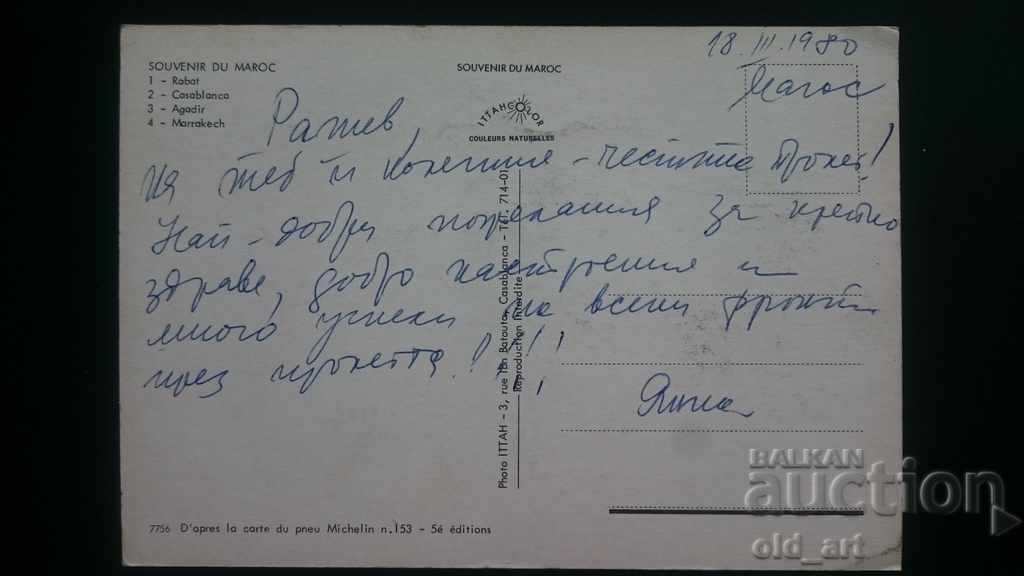 SOUVENIR DU MAROC
1 - Rabat
2 - Casablanca
3 - Agadir
4 - Marrakech
SOUVENIR DU MAROC
ITTAHCOLOR
COULEURS NATURELLES
18.III.1980
Maroc
Ратев,
на теб и колегите - честита пролет!
Най-добри пожелания за крепко
здраве, добро настроение и
много успехи на всеки фронт
през пролетта!!!
Photo ITTAH - 3, rue Ibn Batouta, Casablanca - Tél. 714-01
Reproduction Interdite
7756 D'apres la carte du pneu Michelin n.153 - 5é éditions
BALKAN
auction
old_art